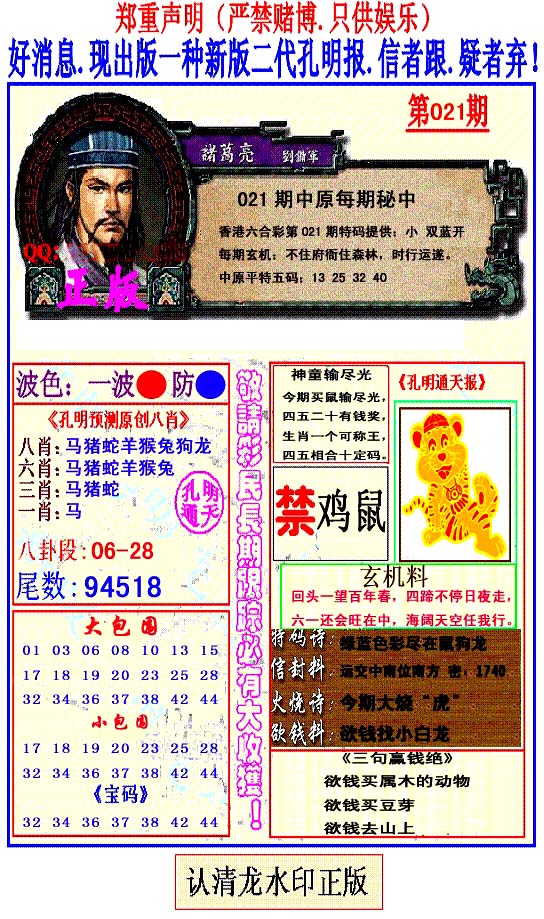 郑重声明（严禁赌博.只供娱乐）
好消息.现出版一种新版二代孔明报.信者跟.疑者弃!
第021期
諸葛亮
021期中原每期秘中
香港六合彩第021期特码提供：小 双蓝开
每期玄机：不住府衙住森林，时行运遂。
中原平特五码：13 25 32 40
QQ:
正版
波色：一波 防
《孔明预测原创八肖》
八肖:马猪蛇羊猴兔狗龙
六肖:马猪蛇羊猴兔
三肖:马猪蛇
一肖:马
孔明
通天
八卦段:06-28
尾数:94518
大包围
01 03 06 08 10 13 15
17 18 19 20 23 25 28
32 34 36 37 38 42 44
小包围
17 18 19 20 23 25 28
32 34 36 37 38 42 44
《宝码》
32 34 36 37 38 42 44
敬請彩民長期跟踪必有大收獲！
神童输尽光
今期买鼠输尽光，
四五二十有钱奖，
生肖一个可称王，
四五相合十定码。
《孔明通天报》
禁鸡鼠
玄机料
回头一望百年春，四蹄不停日夜走，
六一还会旺在中，海阔天空任我行。
特码诗:绿蓝色彩尽在鼠狗龙
信封料:运交中南位南方 密：1740
火烧诗:今期大烧“虎”
欲钱料:欲钱找小白龙
《三句赢钱绝》
欲钱买属木的动物
欲钱买豆芽
欲钱去山上
认清龙水印正版